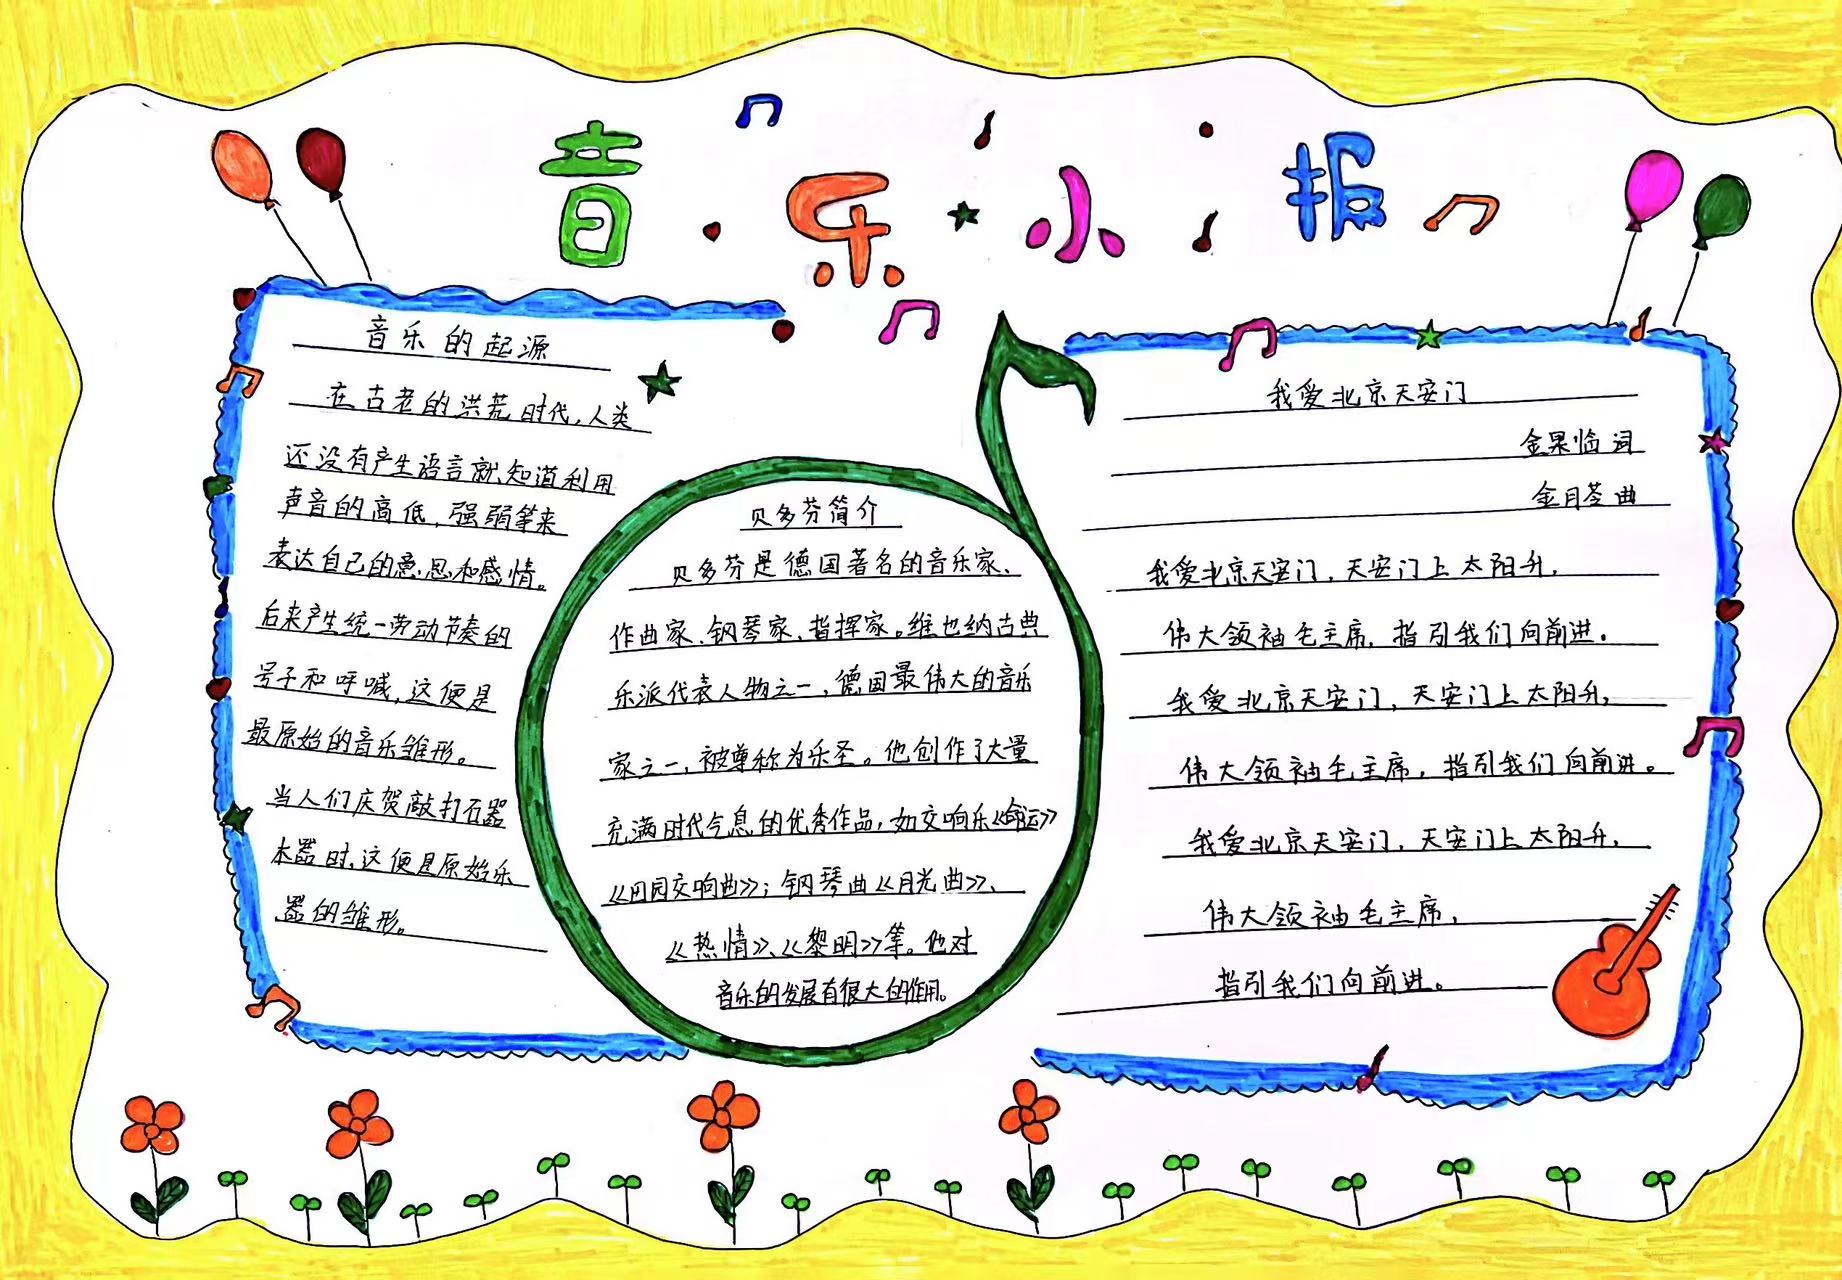 音乐小报
音乐的起源
在古老的洪荒时代,人类
还没有产生语言就知道利用
声音的高低,强弱等来
表达自己的意思和感情。
后来产生统一劳动节奏的
号子和呼喊,这便是
最原始的音乐雏形。
当人们庆贺敲打石器
木器时,这便是原始乐
器的雏形。
贝多芬简介
贝多芬是德国著名的音乐家、
作曲家、钢琴家、指挥家。维也纳古典
乐派代表人物之一,德国最伟大的音乐
家之一,被尊称为乐圣。他创作了大量
充满时代气息的优秀作品,如交响乐《命运》
《田园交响曲》;钢琴曲《月光曲》、
《热情》、《黎明》等。他对
音乐的发展有很大的作用。
我爱北京天安门
金果临 词
金月苓 曲
我爱北京天安门,天安门上太阳升,
伟大领袖毛主席,指引我们向前进。
我爱北京天安门,天安门上太阳升,
伟大领袖毛主席,指引我们向前进。
我爱北京天安门,天安门上太阳升,
伟大领袖毛主席,
指引我们向前进。